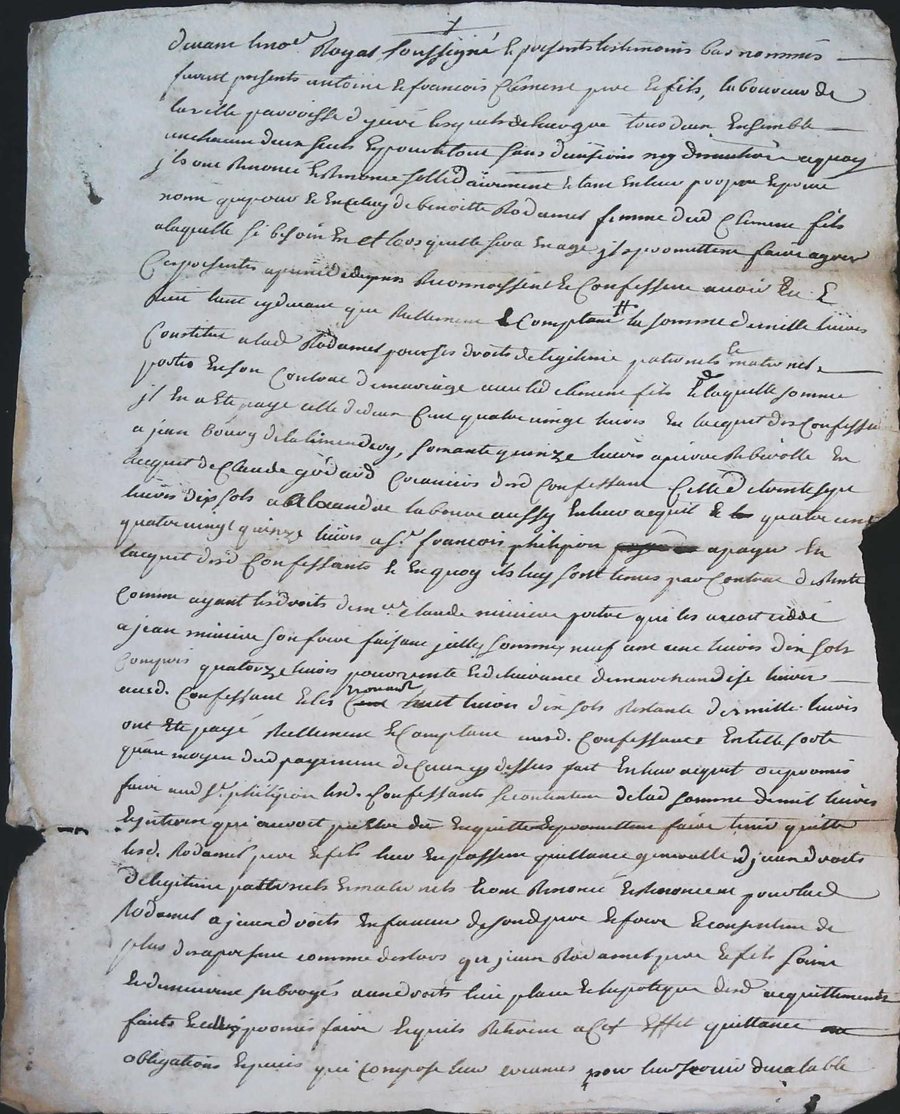 devant le no.re Royal soussigné et presents les temoins bas nommés
furent presents antoine et francois Clement pere et fils, laboureurs de
la ville parroisse d'yevre lesquels de leur gré tous deux Ensemble
un chacun d'eux seul et pour le tout sans divisions ny a quoy
ils ont Renoncé et Renoncent sollidairement et tant En leur propre et privé
nom que pour et En Celuy de benoitte Rodamel femme dud Clement fils
a laquelle si besoin En Et lors quelle sera En age ils promettent faire agreer
Ces presentes a peine de depens Reconnoissent et Confessent avoir Eu E
tant cy devant que Reellement et Comptant la somme de mille livres
Constituée a lad Rodamel pour ses droits de legitime paternels et maternels
portés En son Contrat de mariage avec led clement fils de laquelle somme
il En a Eté payé celle de deux Cent quatre vingt livres En lacquit des Confessants
a jean bourg de la , soixante quinze livres a pierre Rebirolle En
lacquit de Claude godard Creancier desd Confessants Celle de trente sept
livres dix sols a Alexandre la boure aussy En leur acquit et quatre cent
quatre vingt quinze livres a S.r francois philipion a payer En
lacquit desd Confessants et En quoy ils luy sont tenus par Contrat de Rente
Comme ayant les droits de m.re Claude miniere pretre qui les avoit cédé
a jean miniere son frere faisant jcelles sommes neuf cent une livres dix sols
Compris quatorze livres pour vente et delivrance de marchandise livrés
ausd. Confessant et les nonante huit livres dix sols Restante desd mille livres
ont Eté payé Reellement et Comptant ausd. Confessants En telle sorte
quau moyen dud payement de Ceux cy dessus fait En leur acquit ou promis
faire aud S.r philipion lesd. Confessants se contentent de lad somme de mil livres
Et interest qui auroit pu Etre dus En quittent et promettent faire tenir quitte
lesd. Rodamel pere et fils leur En passent quittance generalle d jceux droits
de legitime paternels et maternels et ont Renoncé et Renoncent pour lad
Rodamel a jceux droits En faveur de sond pere et frere Et consentent de
plus des a present comme des lors que jean Rodamel pere et fils soient
Et demeurent subrogés aux droits lieu place et hipoteque desd acquittements
faits et promis faire lesquels Retirent a Cet Effet quittance
obligations Et pieces qui compose leur creances pour leur servir de valable